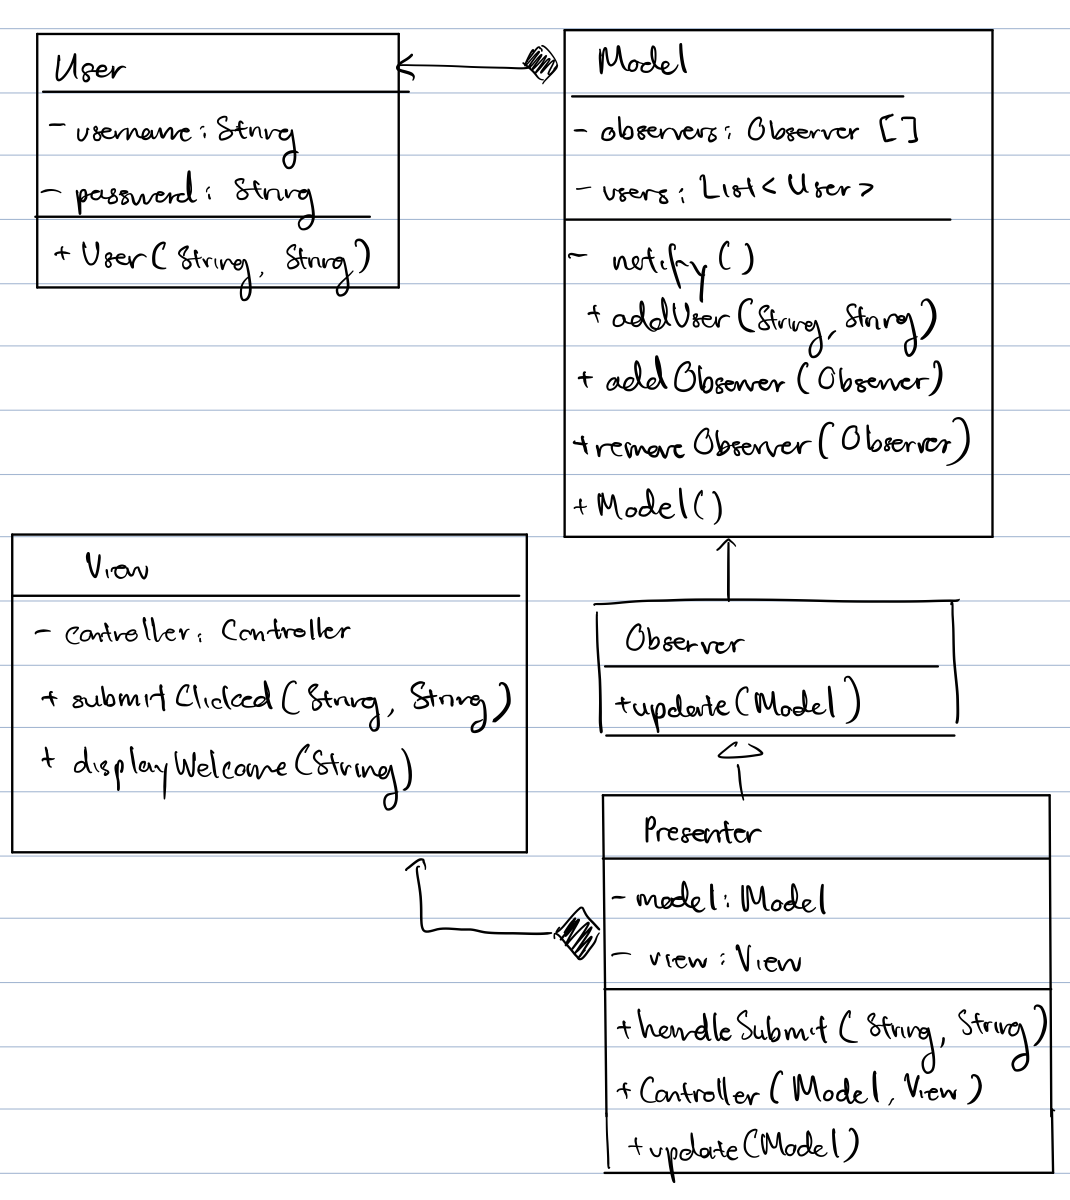 User
- username: String
- password: String
+ User(String, String)
Model
- observers: Observer []
- users: List<User>
- notify()
+ addUser(String, String)
+ addObserver(Observer)
+ removeObserver(Observer)
+ Model()
View
- controller: Controller
+ submitClicked(String, String)
+ displayWelcome(String)
Observer
+update(Model)
Presenter
- model: Model
- view: View
+ handleSubmit(String, String)
+ Controller(Model, View)
+update(Model)